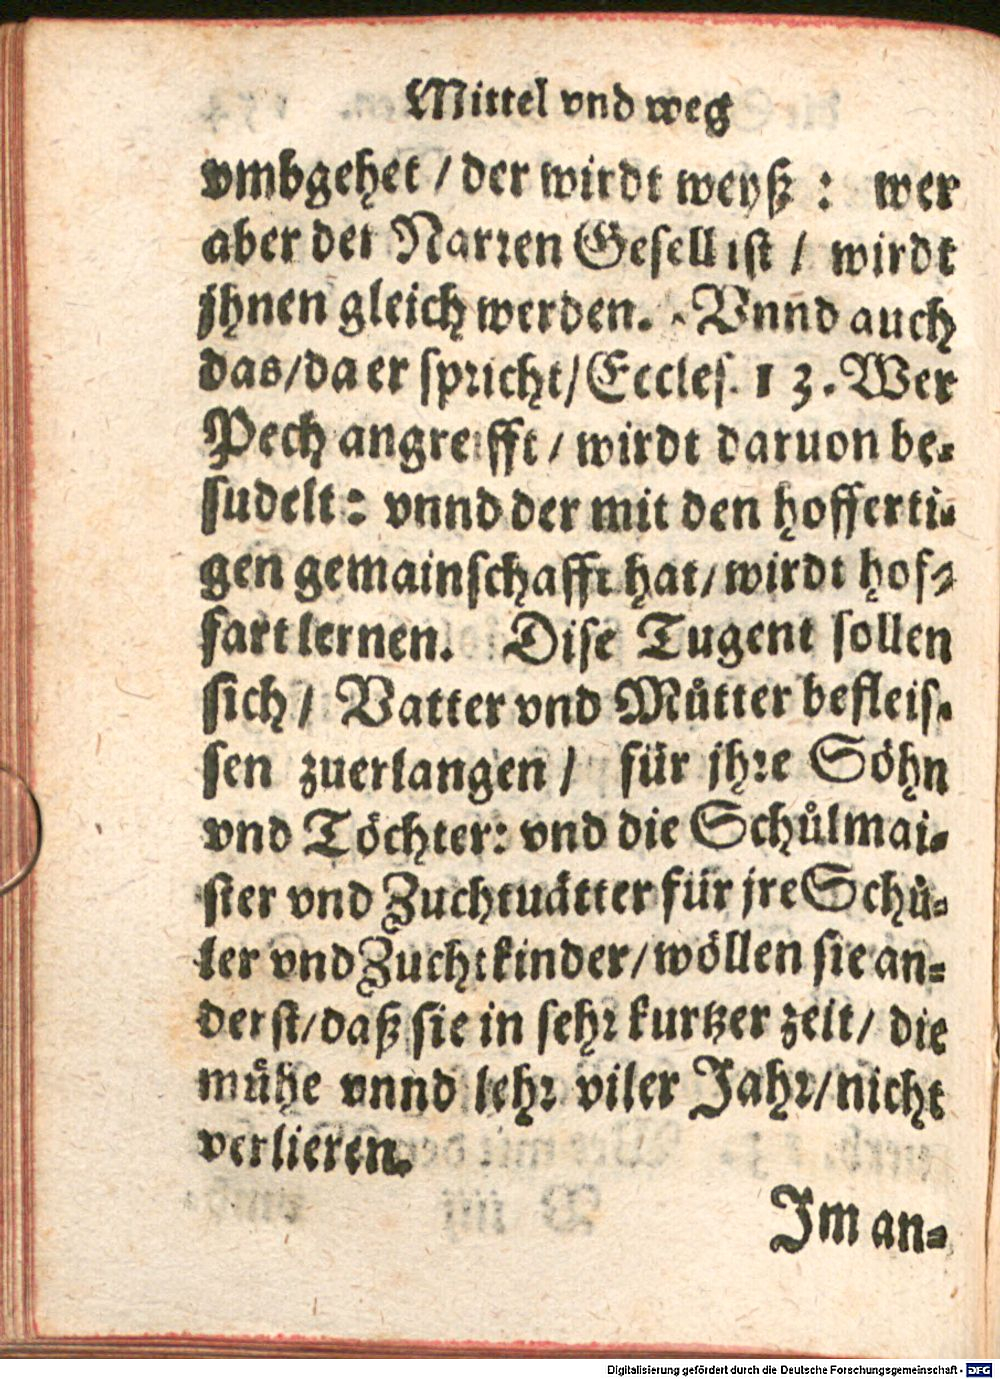 Mittel vnd weg
vmbgehet / der wirdt weyß : wer
aber der Narren Gesell ist / wirdt
jhnen gleich werden. Vnnd auch
das / da er spricht / Eccles. 13. Wer
Pech angreifft / wirdt daruon be-
sudelt : vnnd der mit den hofferti-
gen gemainschafft hat / wirdt hof-
fart lernen. Dise Tugent sollen
sich / Vatter vnd Muͤtter befleis-
sen zuerlangen / für jhre Söhn
vnd Töchter: vnd die Schuͤlmai-
ster vnd Zuchtuätter für jre Schü-
ler vnd Zuchtkinder / wöllen sie an-
derst / daß sie in sehr kurtzer zeit / die
mühe vnnd lehr viler Jahr / nicht
verlieren.
Im an-
Digitalisierung gefördert durch die Deutsche Forschungsgemeinschaft - DFG